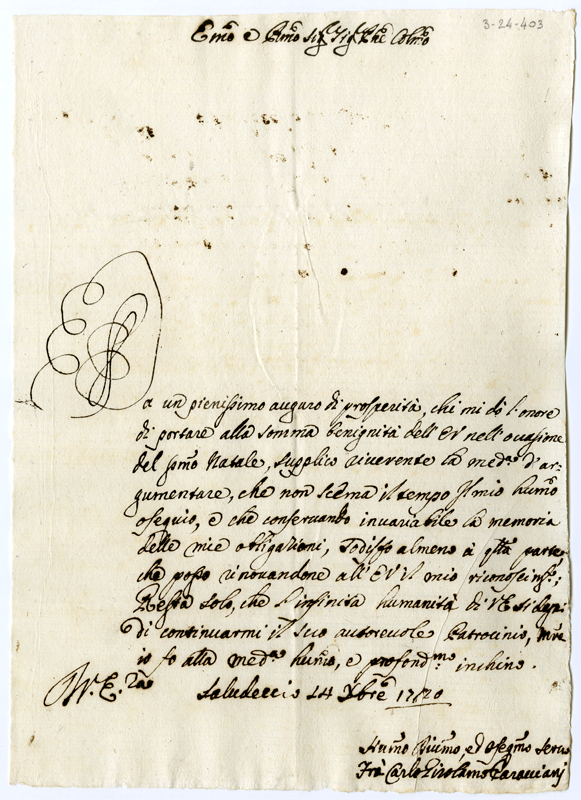 3-24-403
Emo e Rmo Sig Sig Pne Colmo
Da un pienissimo auguro di prosperità, che mi dò l'onore
di portare alla somma benignità dell'EV nell'occasione
del Natale, supplico riverente la meda d'ar-
gumentare, che non scema il tempo il mio humo
ossequio, e che conservando invariabile la memoria
delle mie obligazioni, sodisfo almeno à qsta parte
che posso rinovandone all'EV il mio
Resta solo, che l'infinita humanità di VE si degni
di continuarmi il suo autorevole Patrocinio, mre
io fo alla meda humo, e profondmo inchino.
V. E. Za
Saludeccio 24 Xbre 1720
Humo Divmo, ed Osseqmo Servo
Frà Carlo Girolamo